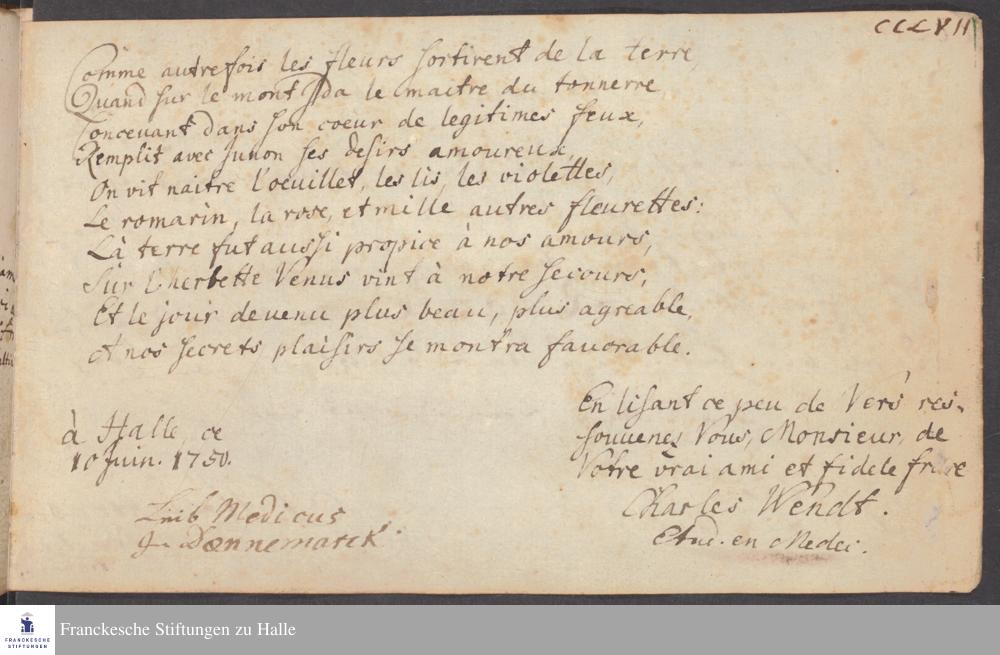 CCCLVII
Comme autrefois les fleurs sortirent de la terre,
Quand sur le mont Ida le maitre du tonnerre
Concevant dans son coeur de legitimes feux,
Remplit avec Junon ses desirs amoureux,
On vit naitre l'oeuillet, les lis, les violettes,
Le romarin, la rose, et mille autres fleurettes:
La terre fut aussi propice à nos amours,
Sur l'herbette Venus vint à notre secours,
Et le jour devenu plus beau, plus agreable,
A nos secrets plaisirs se montra favorable.
à Halle, ce
10 Juin. 1750.
En lisant ce peu de Vers res-
souvenes Vous, Monsieur, de
Votre vrai ami et fidele frere
Charles Wendt.
Etud. en Medec.
Leib Medicus
in Dænnemarck
FRANCKESCHE
STIFTUNGEN
Franckesche Stiftungen zu Halle